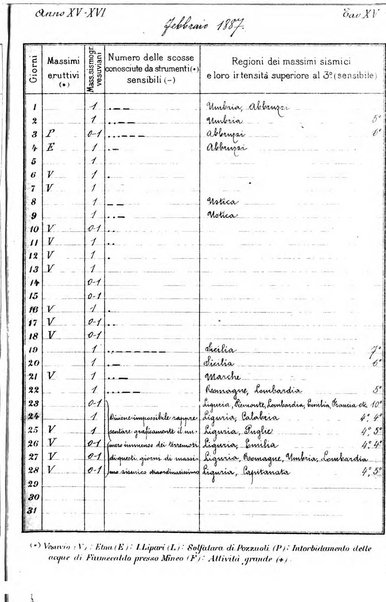 Anno XV-XVI Tav XV
Febbraio 1887.
Giorni Massimi eruttivi (•) Mass. sismogr. vesuviani Numero delle scosse conosciute da strumenti (•) sensibili (–) Regioni dei massimi sismici e loro intensità superiore al 3º (sensibile)
1 1 Umbria, Abbruzzi
2 1 Umbria 5º
3 P 0-1 Abbruzzi 6º
4 E 1 Abbruzzi
5 1
6 V 1
7 V 1
8 1 Ustica
9 1 Ustica
10 V 0-1
11 V 1
12 V 0-1
13 V 1
14 0-1
15 0-1
16 V 1
17 V 0-1
18 V 0-1
19 1 Sicilia 7º
20 1 Sicilia 6º
21 V 1 Marche
22 1 Romagne, Lombardia 5º
23 0-1 Liguria, Piemonte, Lombardia, Emilia, Francia etc. 10º
24 1 Riesce impossibile rappre Liguria, Calabria 4º, 4º
25 V 1 sentare graficamente il nu- Liguria, Puglie 4º, 5º
26 V 0-1 mero immenso dei terremoti Liguria, Emilia 4º, 4º
27 V 0-1 di questi giorni di massi- Liguria, Romagne, Umbria, Lombardia
28 V 0-1 mo sismico straordinarissimo Liguria, Capitanata 4º, 5º
29
30
31
(•) Vesuvio (V): Etna (E): I. Lipari (L): Solfatara di Pozzuoli (P): Intorbidamento delle
acque di Fiumecaldo presso Mineo (F): Attività grande (•).